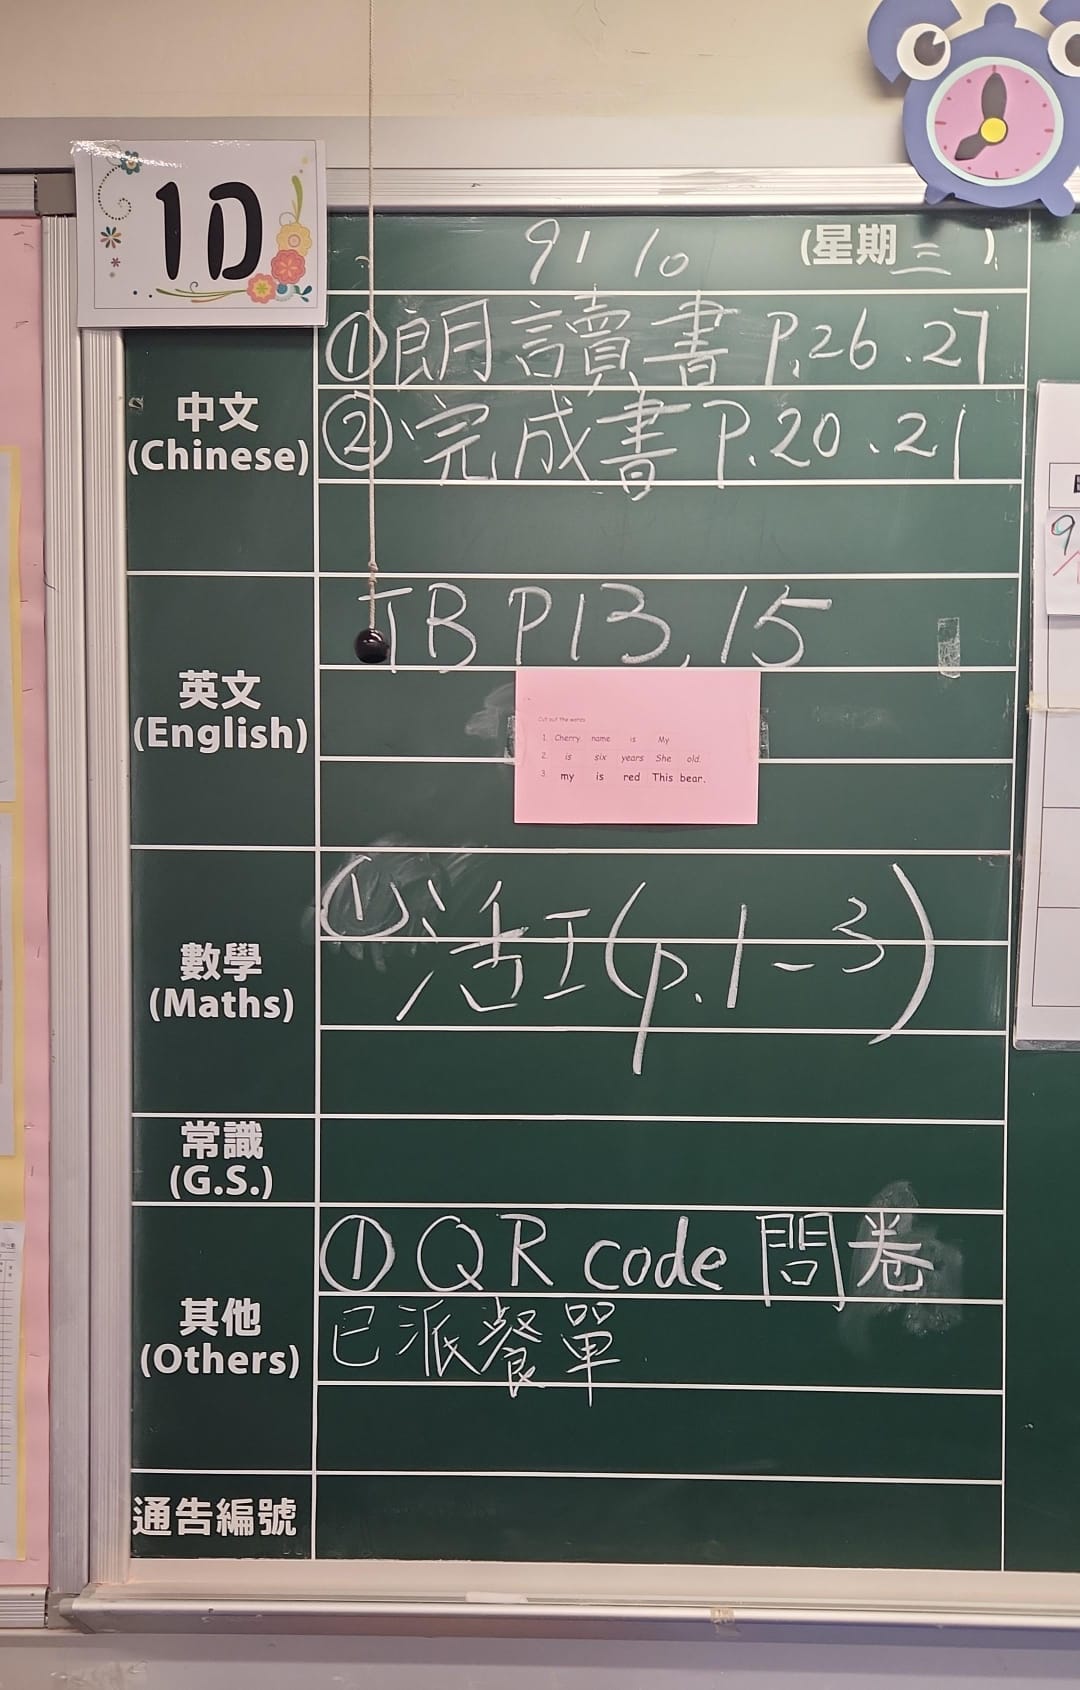 1D
9/10 (星期三)
中文
(Chinese)
①朗讀書 P.26.27
②完成書 P.20.21
英文
(English)
TB P13, 15
Cut out the words
1. Cherry name is My
2. is six years She old.
3. my is red This bear.
數學
(Maths)
① 活工(p.1-3)
常識
(G.S.)
其他
(Others)
① QR code 問卷
已派餐單
通告編號